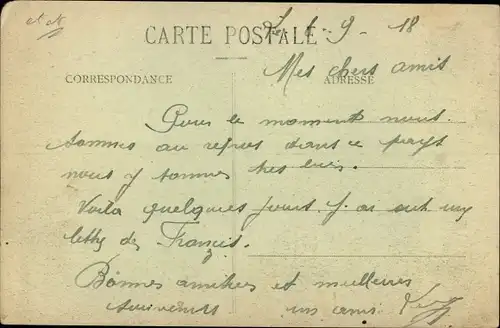 Le 6-9-18
CARTE POSTALE
Mes chers amis
CORRESPONDANCE
ADRESSE
Pour le moment nous
sommes au repos dans ce pays
nous y sommes tres bien.
Voila quelques jours j'ai eut une
lettre de Francis.
Bonnes amitiées et meilleures
souvenirs un ami